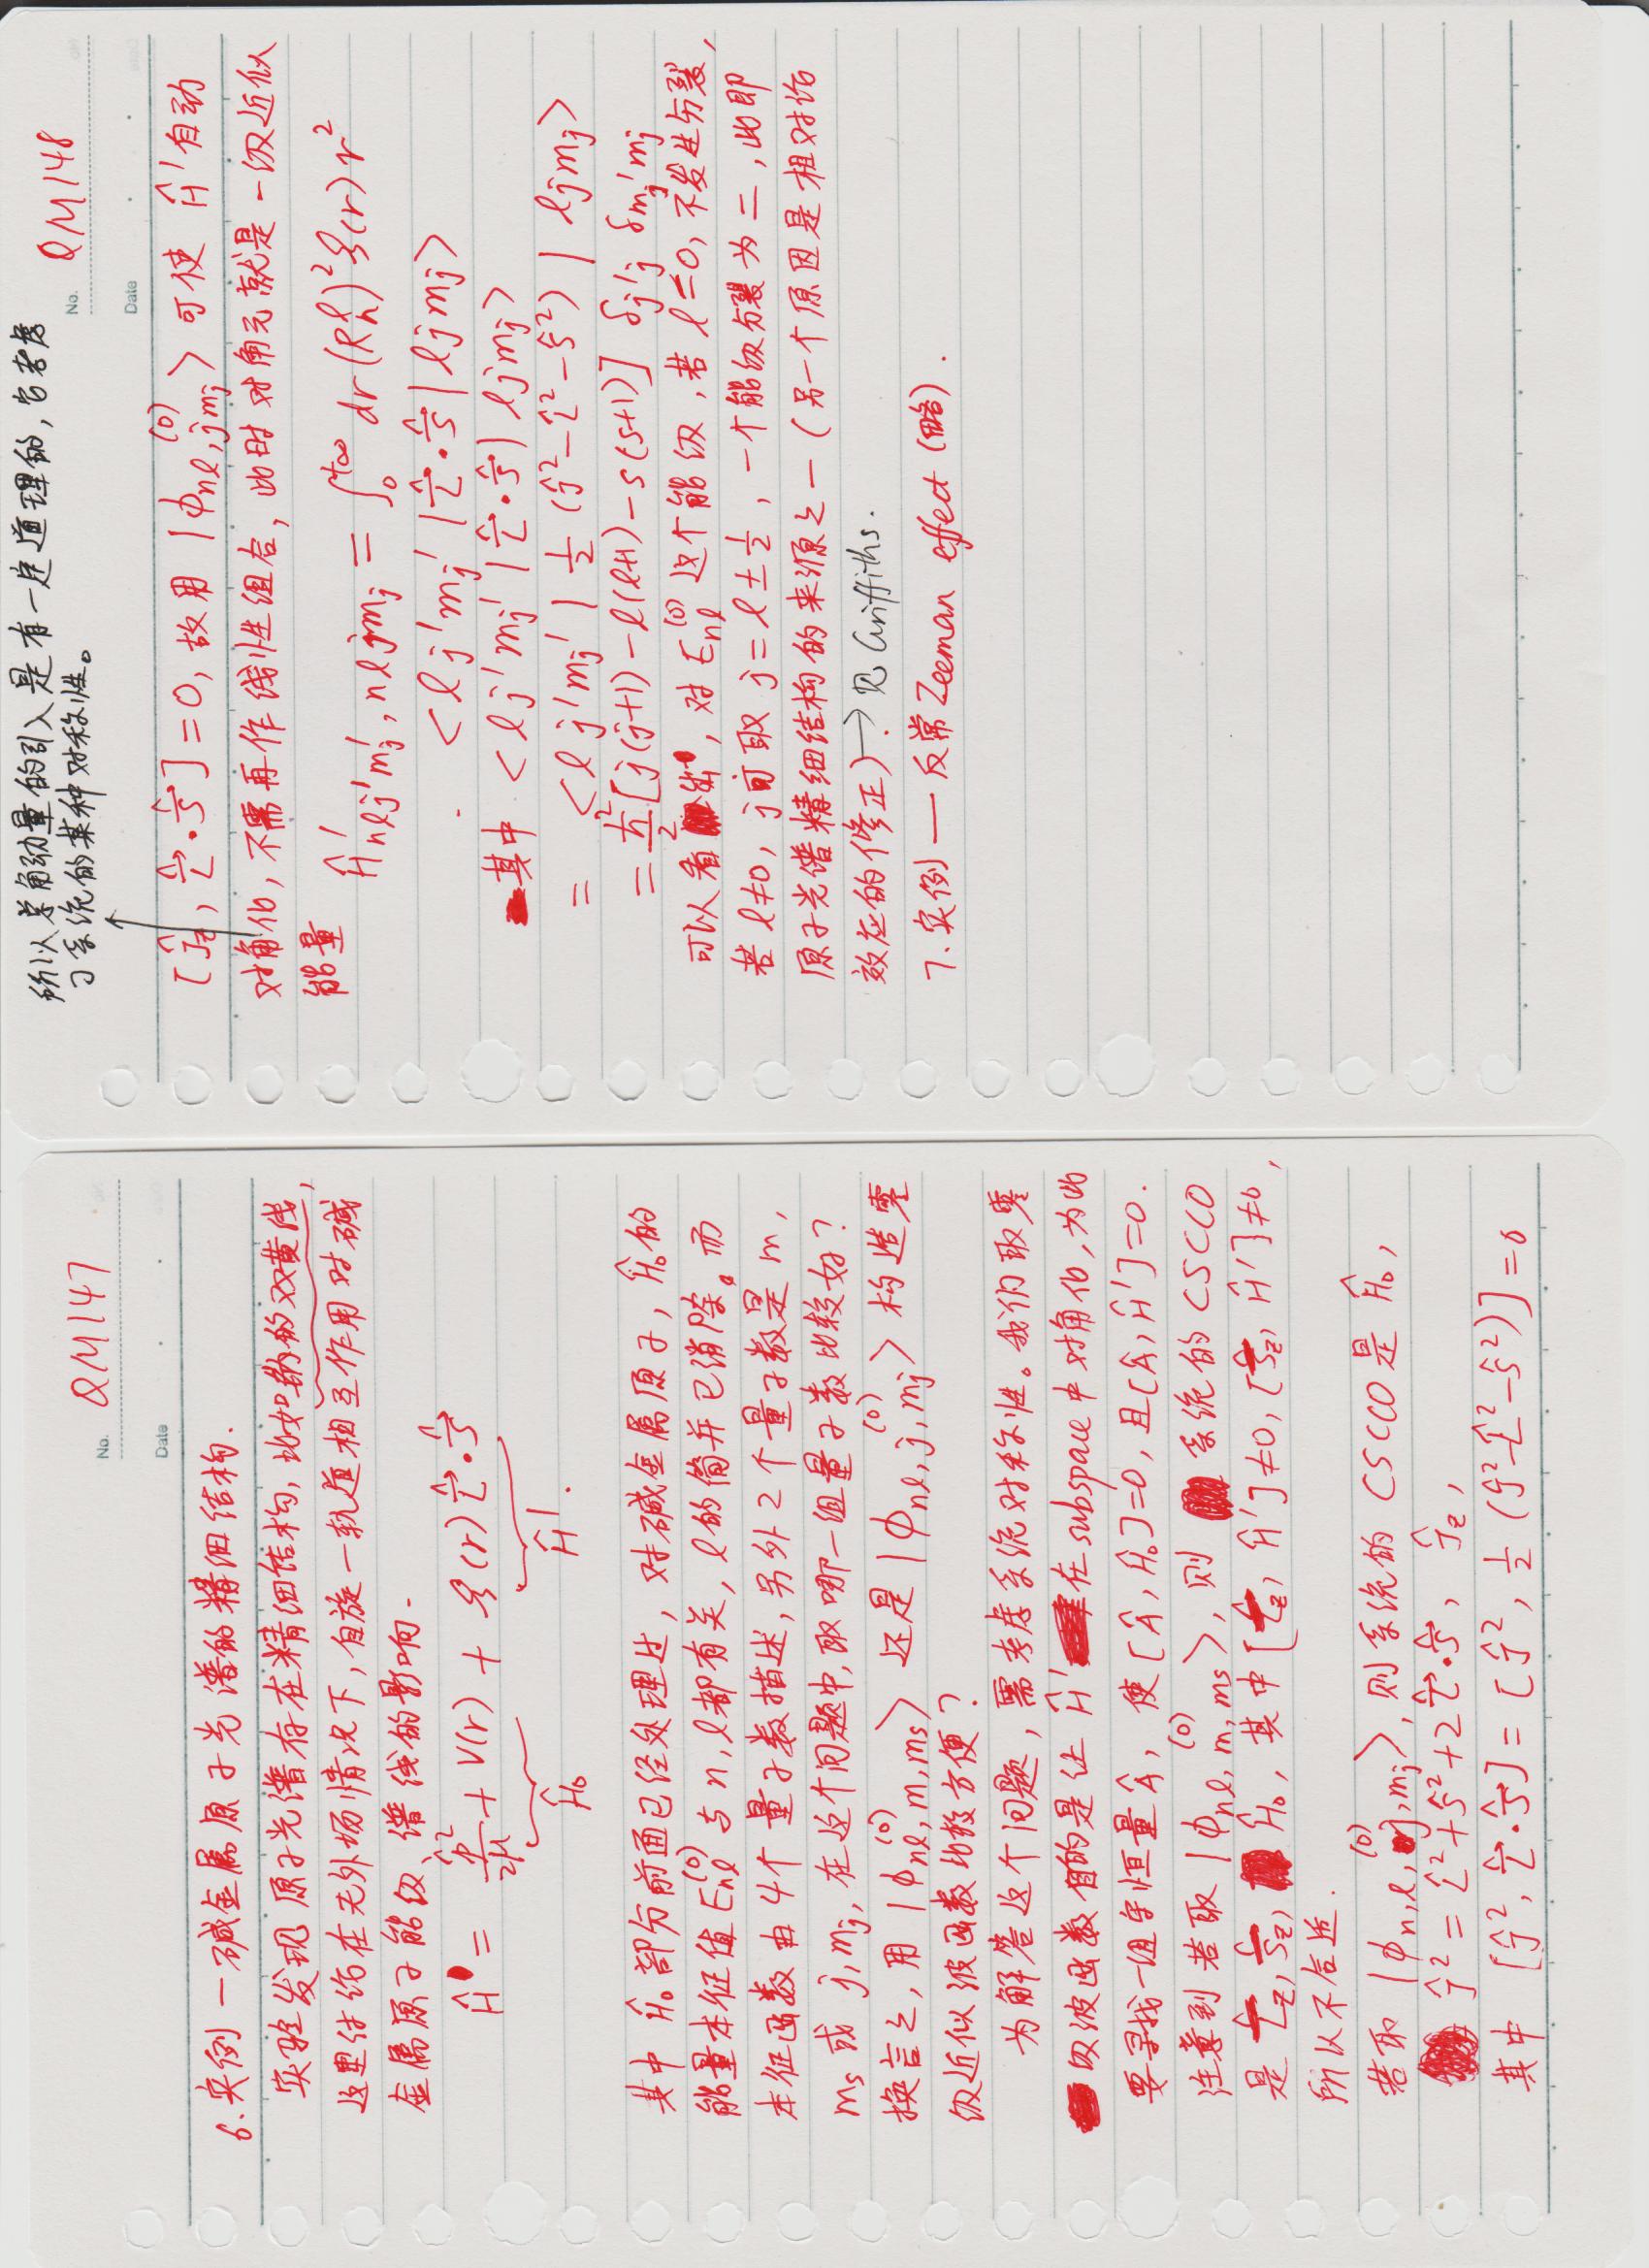 No. QM147
Date
6. 实例—碱金属原子光谱的精细结构.
实验发现原子光谱存在精细结构, 比如钠的双黄线,
这里讨论在无外场情况下, 自旋—轨道相互作用对碱
金属原子能级、谱线的影响.
Ĥ = p̂²/2μ + V(r) + ξ(r) L̂⃗·Ŝ⃗
Ĥ₀ Ĥ'.
其中 Ĥ₀ 部分前面已经处理过, 对碱金属原子, Ĥ₀的
能量本征值 Eₙₗ⁽⁰⁾ 与 n, l 都有关, l 的简并已消除。而
本征函数由4个量子数描述, 另外2个量子数是 m,
mₛ 或 j, mⱼ, 在这个问题中, 取哪一组量子数比较好?
换言之, 用 |ϕ_{nl,m,ms}^{(0)}> 还是 |ϕ_{nl,j,mj}^{(0)}> 构造零
级近似波函数比较方便?
为解答这个问题, 需考虑系统对称性。我们取零
级波函数目的是让 Ĥ' 在subspace中对角化, 为此
要寻找一组守恒量 Â, 使 [Â, Ĥ₀]=0, 且[Â, Ĥ']=0.
注意到若取 |ϕ_{nl,m,ms}^{(0)}>, 则系统的 CSCCO
是 L̂_z, Ŝ_z, Ĥ₀, 其中 [L̂_z, Ĥ']≠0, [Ŝ_z, Ĥ']≠0,
所以不合适.
若取 |ϕ_{n,l,j,mj}^{(0)}>, 则系统的 CSCCO 是 Ĥ₀,
Ĵ² = L̂²+Ŝ²+2L̂⃗·Ŝ⃗, Ĵ_z,
其中 [Ĵ², L̂⃗·Ŝ⃗] = [Ĵ², ½(Ĵ²-L̂²-Ŝ²)] = 0
所以总角动量的引入是有一定道理的, 它考虑
了系统的某种对称性。
No. QM148
Date
[Ĵ_z, L̂⃗·Ŝ⃗]=0, 故用 |ϕ_{nl,jmj}^{(0)}> 可使 Ĥ' 自动
对角化, 不需再作线性组合, 此时对角元就是一级近似
能量
Ĥ'_{nlj'mj', nljmj} = ∫₀^{+∞} dr (R_n^l)² ξ(r) r²
· <l j' mj' | L̂⃗·Ŝ⃗ | l j mj>
其中 <l j' mj' | L̂⃗·Ŝ⃗ | l j mj>
= <l j' mj' | ½ (Ĵ²-L̂²-Ŝ²) | l j mj>
= ħ²/2 [j(j+1) - l(l+1) - s(s+1)] δ_{j'j} δ_{mj'mj}
可以看出, 对 Eₙₗ⁽⁰⁾ 这个能级, 若 l=0, 不发生分裂,
若 l≠0, j可取 j = l ± ½, 一个能级分裂为二, 此即
原子光谱精细结构的来源之一 (另一个原因是相对论
效应的修正). → 见 Griffiths.
7. 实例 — 反常 Zeeman effect (略).